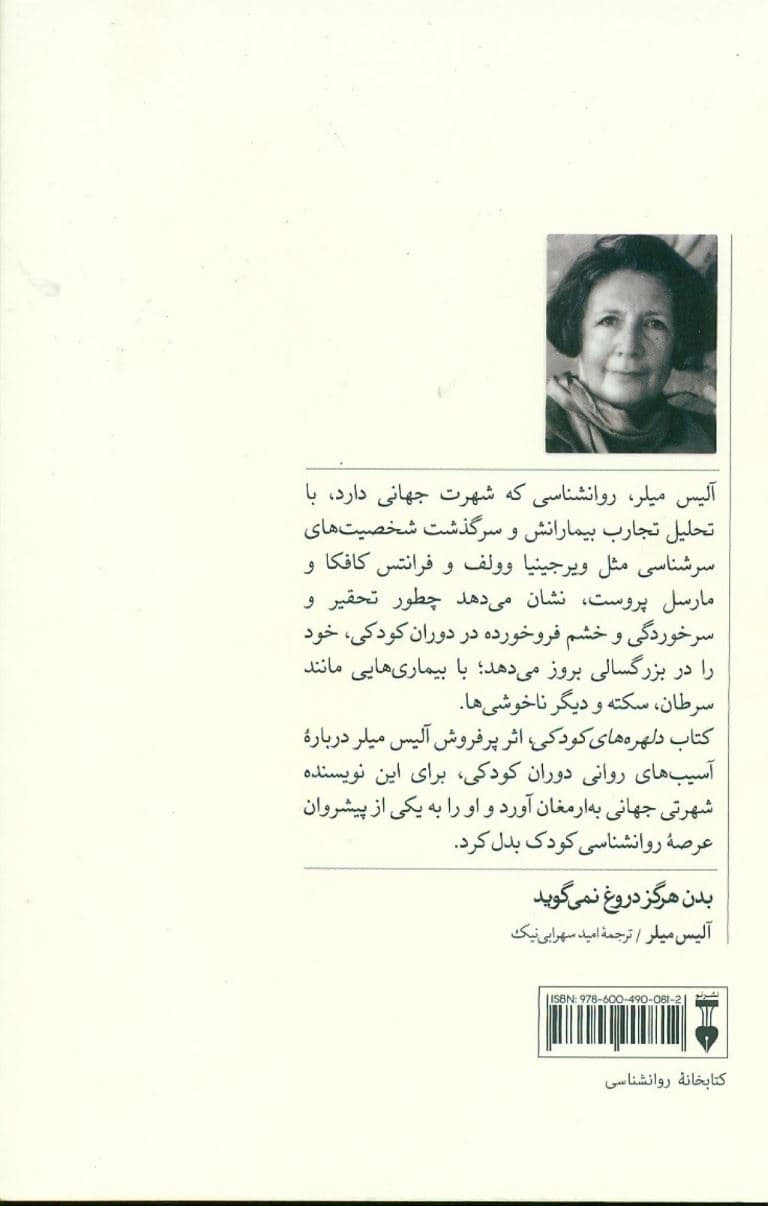 آلیس میلر، روانشناسی که شهرت جهانی دارد، با
تحلیل تجارب بیمارانش و سرگذشت شخصیت‌های
سرشناسی مثل ویرجینیا وولف و فرانتس کافکا و
مارسل پروست، نشان می‌دهد چطور تحقیر و
سرخوردگی و خشم فروخورده در دوران کودکی، خود
را در بزرگسالی بروز می‌دهد؛ با بیماری‌هایی مانند
سرطان، سکته و دیگر ناخوشی‌ها.
کتاب دلهره‌های کودکی، اثر پرفروش آلیس میلر دربارهٔ
آسیب‌های روانی دوران کودکی، برای این نویسنده
شهرتی جهانی به‌ارمغان آورد و او را به یکی از پیشروان
عرصهٔ روانشناسی کودک بدل کرد.
بدن هرگز دروغ نمی‌گوید
آلیس میلر / ترجمهٔ امید سهرابی‌نیک
نشرنو
ISBN: 978-600-490-081-2
کتابخانهٔ روانشناسی